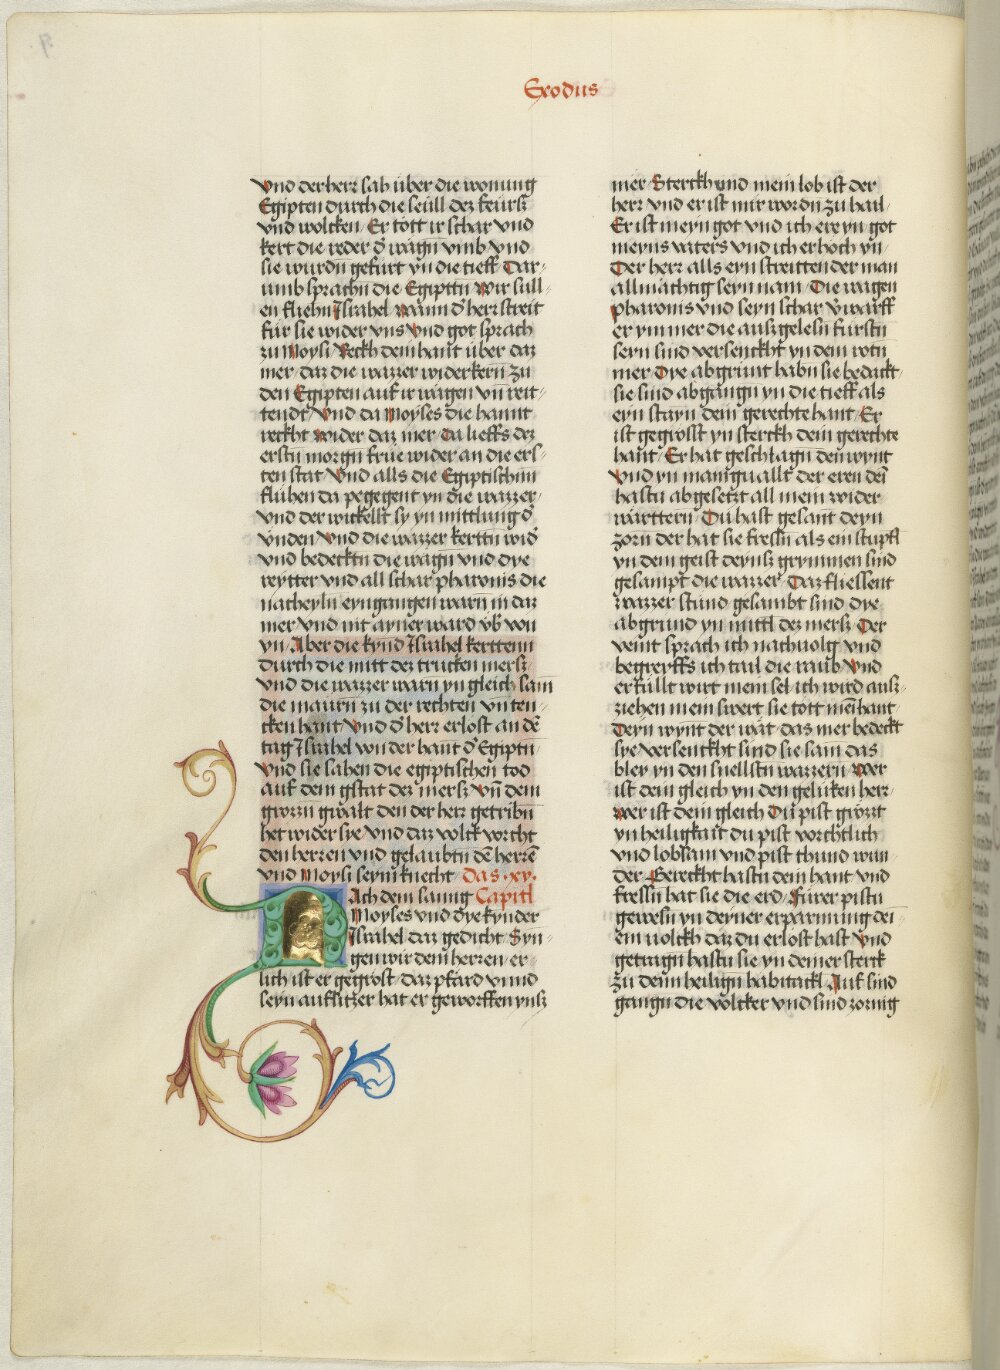 Exodus
Vnd der herr sah über die wonung
Egipten durch die seüll dez feürß
vnd wolcken Er tött ir schar vnd
kert die reder d' wägn vmb vnd
sie wurdn gefürt yn die tieff Dar
umb sprachn die Egipttn Wir süll
en fliehn Israhel wann d' herr streit
für sie wider vns Vnd got sprach
zu Moysi Reckh dein hant über daz
mer daz die wazzer widerkern zu
den Egipten auf ir wägen vn reit
tendt Vnd da Moyses die hannt
reckht wider daz mer Da lieffs dez
erstn morgn frue wider an die ers
ten stat Vnd alls die Egiptischnn
fluhen da pegegent yn die wazzer
vnd der wickellt sy yn mittlung d'
vnden Vnd die wazzer kerttn wid'
vnd bedecktn die wägn vnd dye
reytter vnd all schar pharonis die
nacheyln eyngangen warn in daz
mer vnd nit ayner ward vb' von
yn Aber die kynd Israhel kerttenn
durch die mitt dez trucken merß
vnd die wazzer warn yn gleich sam
die maurn zu der rechten vn ten
cken hant Vnd d' herr erlost an dē
tag Israhel von der hant d' Egiptn
Vnd sie sahen die egiptischen tod
auf dem gstat dez merß Vn dem
grozzn gwalt den der herr getribn
het wider sye Vnd daz volck vorcht
den herren vnd gelaubtn dē herrē
vnd Moysi seynn knecht Das .xv.
Nach dem sanng Capitl
Moyses vnd dye kynder
Israhel daz gedicht Syn
gen wir dem herren er
lich ist er gegröst daz pfärd vnnd
seyn aufsitzer hat er geworffen ynß
mer Sterckh vnd mein lob ist der
herr vnd er ist mir wordn zu hail
Er ist meyn got vnd ich ere yn got
meyns vaters vnd ich erhöch yn
Der herr alls eyn streittender man
allmächtig seyn nam Die wagen
pharonis vnd seyn schar v'warff
er ynn mer die außgelesn fürstn
seyn sind versenckht yn dem rotn
mer Dye abgrünt habn sie bedackt
sie sind abgangn yn die tieff als
eyn stayn dein gerechte hant Er
ist gegrosst yn sterckh dein gerechte
hant Er hat geschlagn den veynt
Vnd yn maniguallt der eren dein
hastu abgesetzt all mein wider
wärttern Du hast gesant deyn
zorn der hat sie fressn als ein stupfl
yn dem geist deynß grymmen sind
gesampt die wazzer Daz fliessent
wazzer stund gesambt sind dye
abgrund yn mittl dez merß Der
veint sprach ich nachuolg vnd
begreyffs ich tail die raub Vnd
erfüllt wirt mein sel ich wird auß
ziehen mein swert sie tött mein hant
Deyn wynt der wät das mer bedeckt
sye versenckht sind sie sam das
bley yn den snellstn wazzern Wer
ist dein gleich yn den gelüken herr
Wer ist dein gleich Du pist grözzt
yn heiligkait du pist vorchtlich
vnd lobsam vnd pist thund wun
der Gereckht hastu dein hant vnd
fressn hat sie die erd Fürer pistu
gewesn yn deyner erparmung dei
em volckh daz du erlost hast Vnd
getragn hastu sie yn deiner sterck
zu deinn heilign habitackl Auf sind
gangn die völcker vnd sind zornig